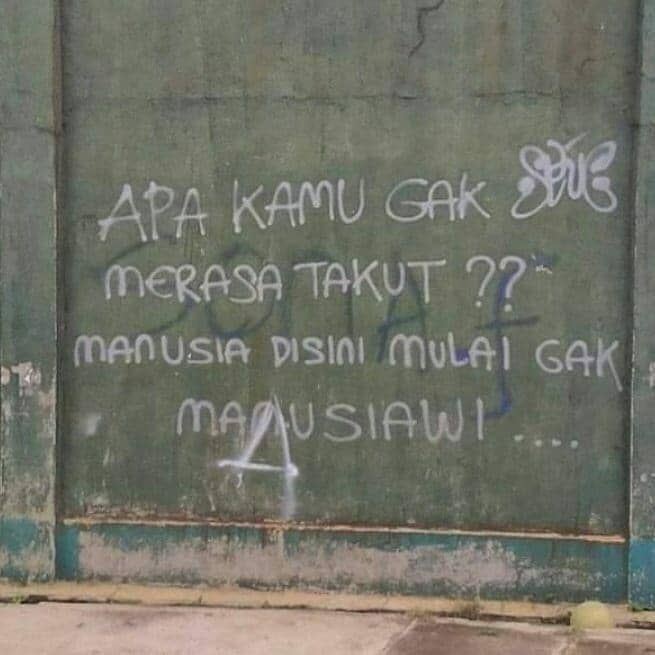 APA KAMU GAK
MERASA TAKUT ??
MANUSIA DISINI MULAI GAK
MANUSIAWI ....